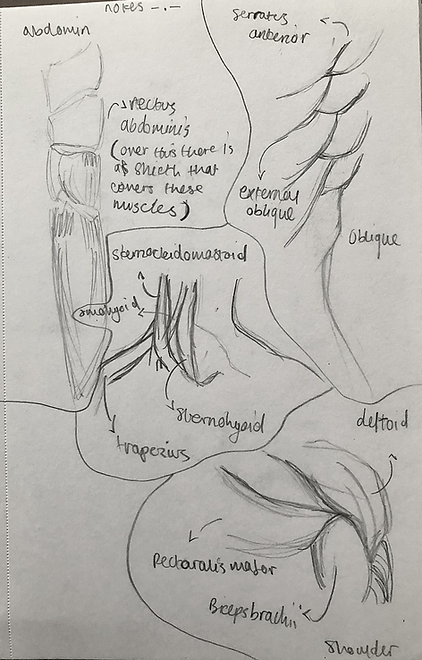 notes -.-
abdomin
rectus
abdominis
(over this there is
a sheeth that
covers these
muscles)
serratus
anterior
external
oblique
oblique
sternocleidomastoid
omohyoid
sternohyoid
trapezius
deltoid
Pectoralis major
Biceps brachii
Shoulder